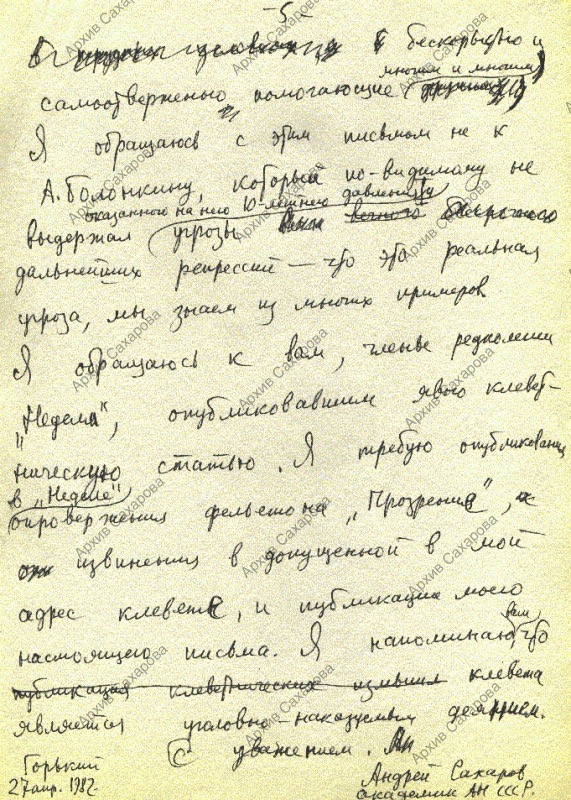 - 5 -
бескорыстно и
многим и многим)
самоотверженно помогающие
Я обращаюсь с этим письмом не к
А. Болонкину, который по-видимому не
оказанного на него 10-летнего давления и
выдержал угрозы
дальнейших репрессий — что это реальная
угроза, мы знаем из многих примеров.
Я обращаюсь к вам, члены редколлегии
„Недели“, опубликовавшим явно клевет-
ническую статью. Я требую опубликования
в „Неделе“
опровержения фельетона „Прозрение“,
извинения в допущенной в мой
адрес клевете, и публикации моего
вам
настоящего письма. Я напоминаю, что
публикация клеветнических измышл клевета
является уголовно-наказуемым деянием.
С уважением.
Горький
27 апр. 1982.
Андрей Сахаров
академик АН СССР.
Архив Сахарова